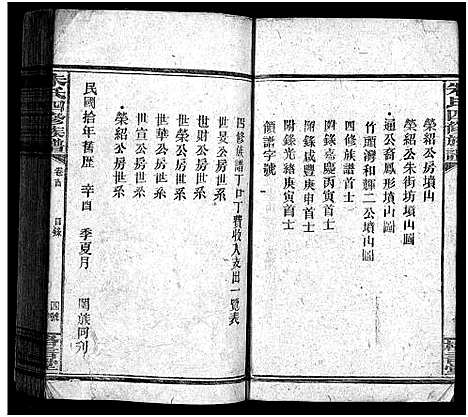 朱氏四修族譜
榮紹公房墳山
榮紹公朱街坊墳山圖
通公裔鳳形墳山圖
竹頭灣和輝二公墳山圖
四修族譜首士
附錄嘉慶丙寅首士
附錄咸豐庚申首士
附錄光緒庚寅首士
領譜字號
四修族譜丁口丁費收入支出一覽表
世旻公房世系
世財公房世系
世榮公房世系
世華公房世系
世宣公房世系
榮紹公房世系
民國拾年舊歷辛酉季夏月 闔族同刊
朱氏四修族譜 卷首 目錄